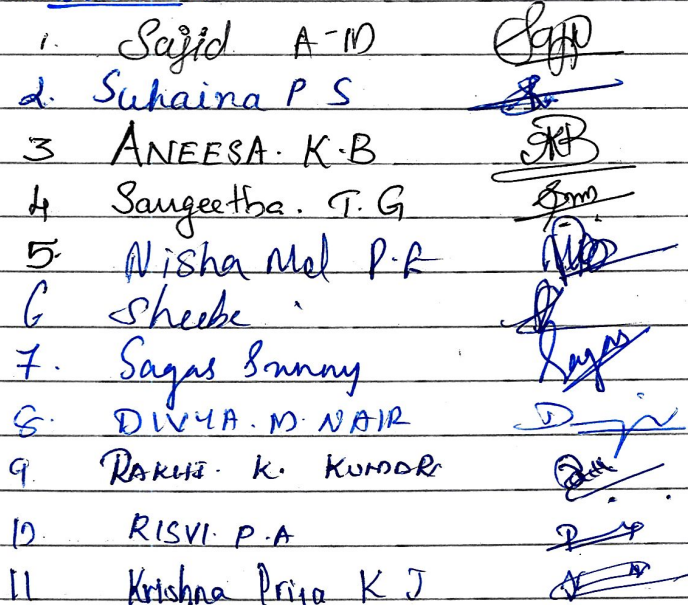 1. Sajid A-M Sajid
2. Suhaina P S
3 ANEESA. K.B AKB
4 Sangeetha. T.G
5. Nisha Mol P.R
6 Sheeba
7. Sagas Sunny Sagas
8. DIVYA. M. NAIR
9. RAKHI. K. KUMAR
10. RISVI. P.A
11 Krishna Priya K J